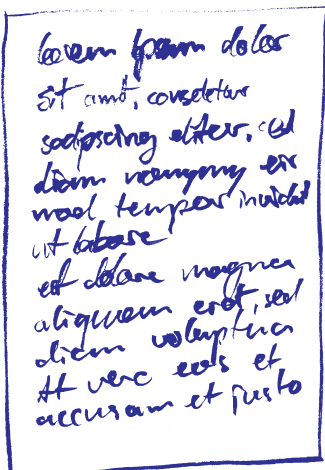 lorem Ipsum dolor
sit amet, consetetur
sadipscing elitr, sed
diam nonymy eir
mod tempor invidut
ut labore
et dolore magna
aliquam erat, sed
diam voluptua
At vero eos et
accusam et justo